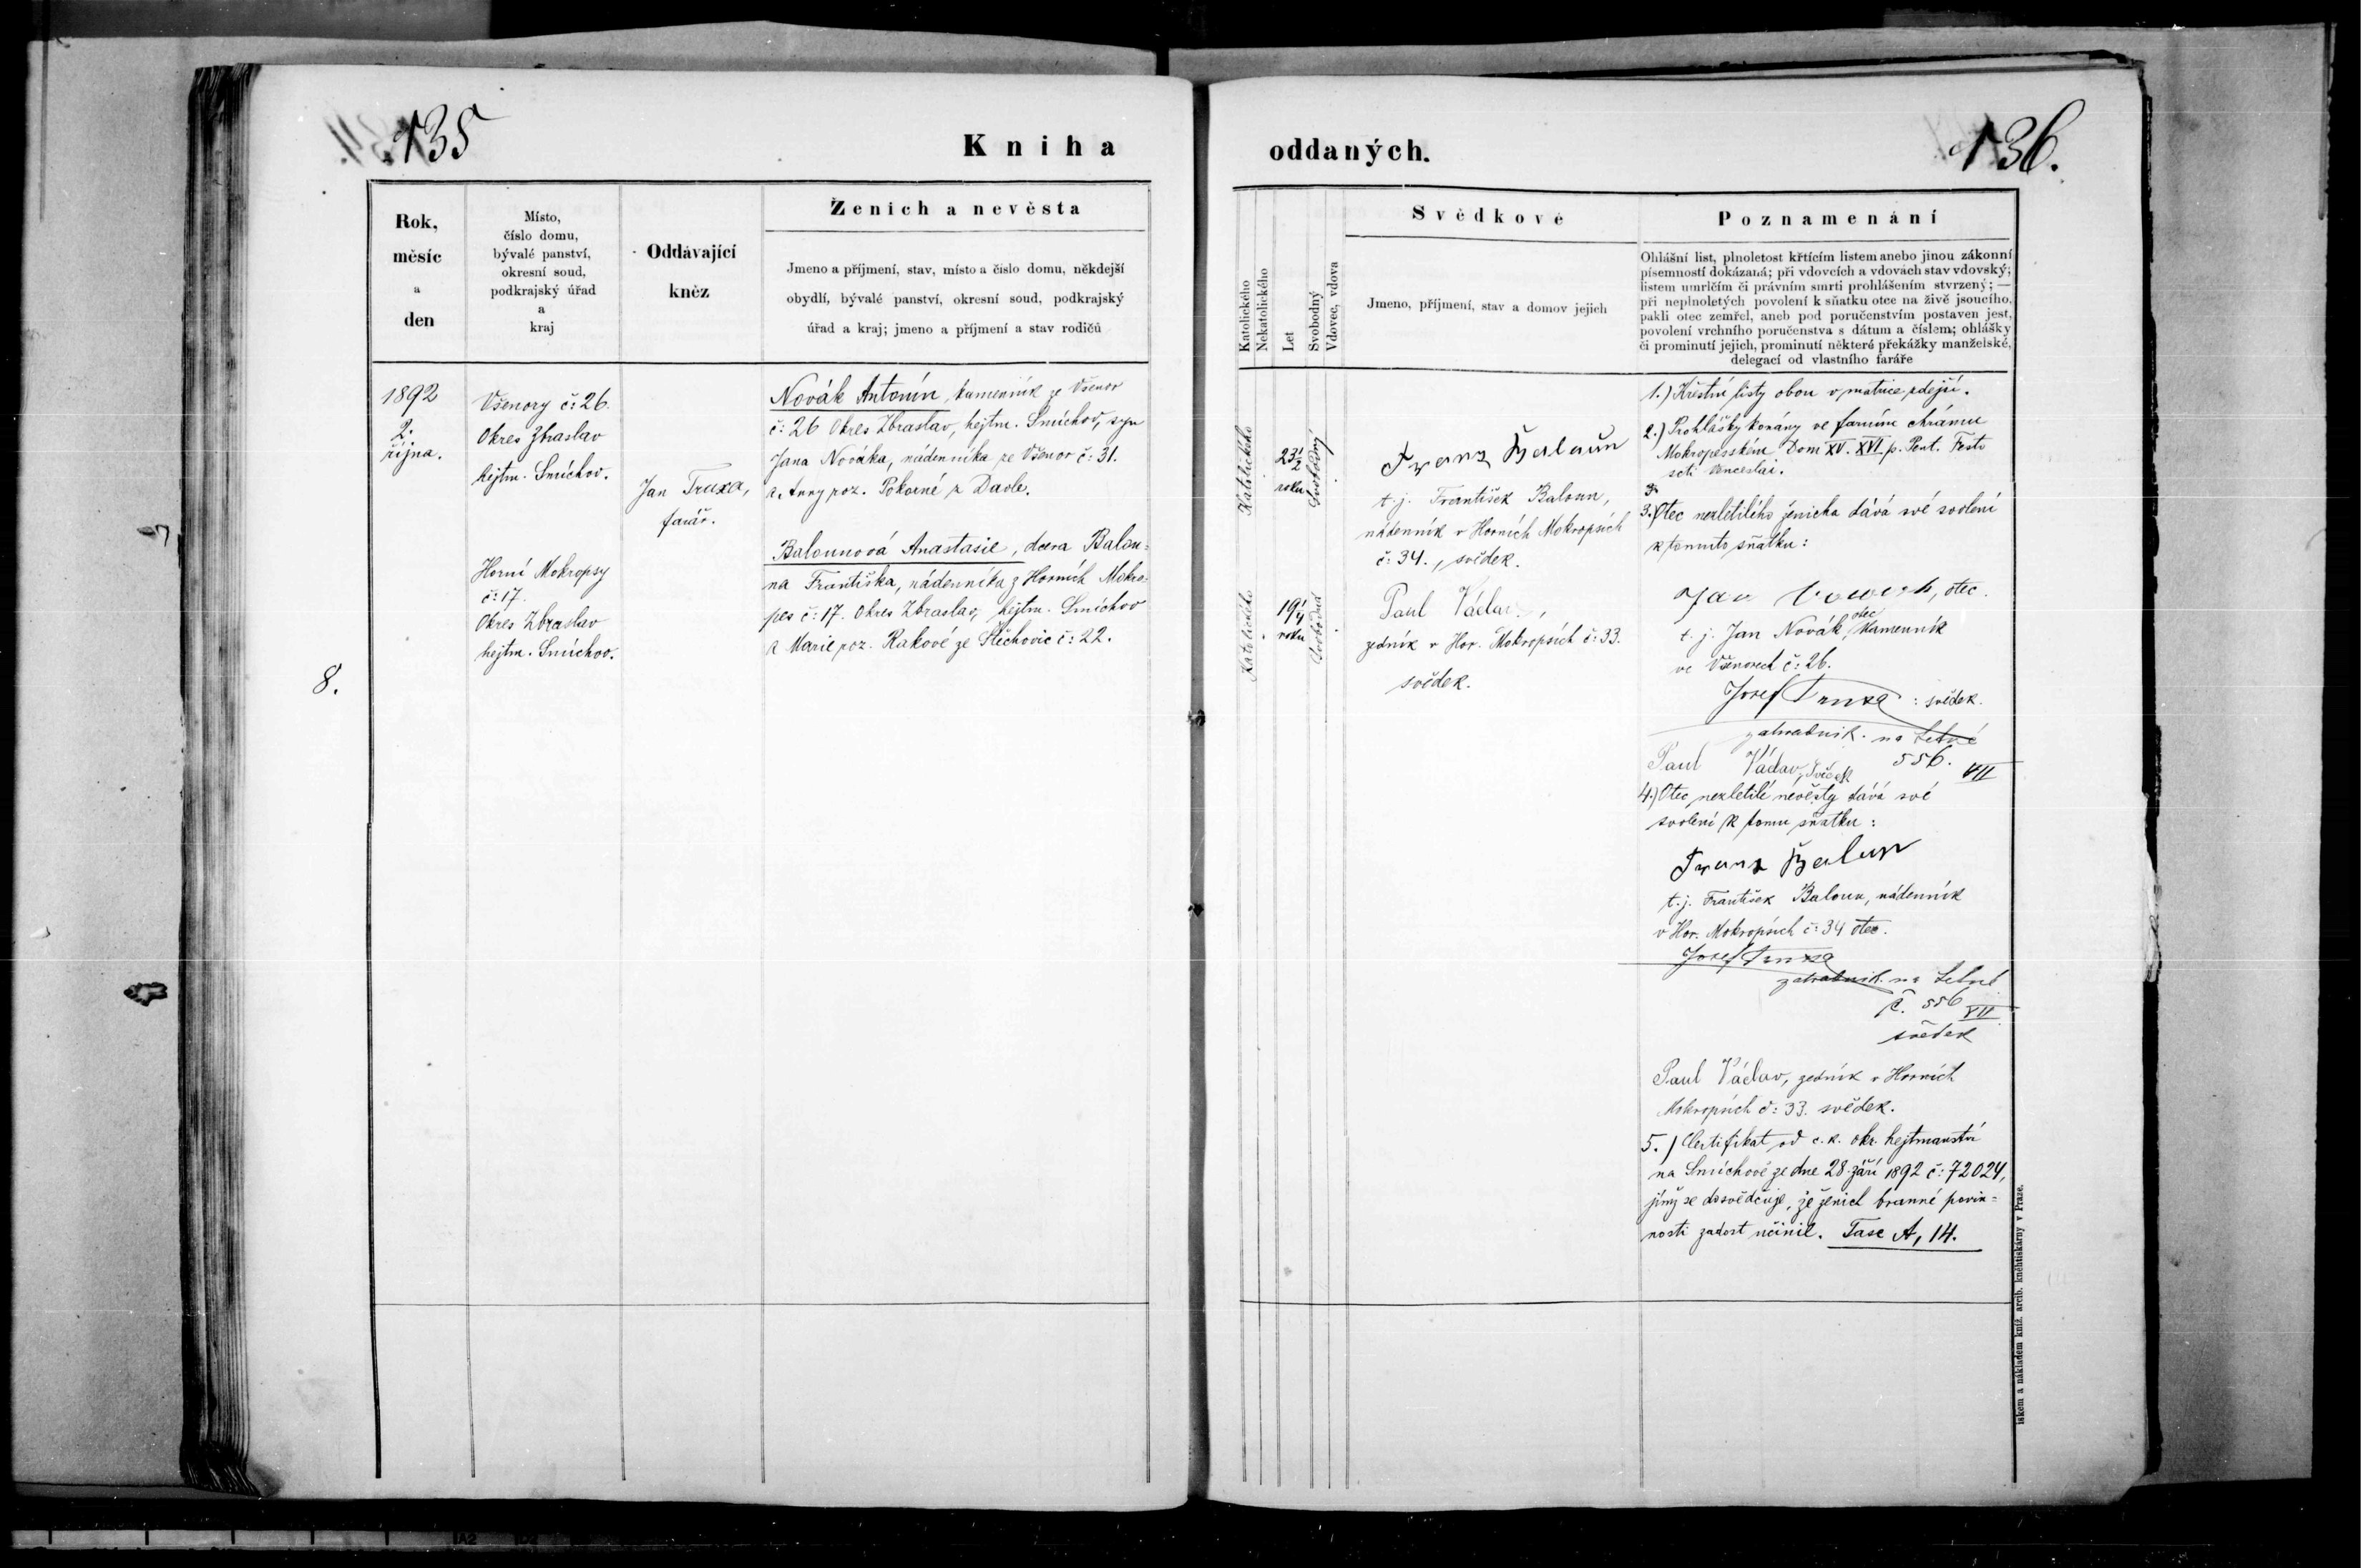 135
Kniha
Rok,
měsíc
a
den
Místo,
číslo domu,
bývalé panství,
okresní soud,
podkrajský úřad
a
kraj
Oddávající
kněz
Ženich a nevěsta
Jmeno a příjmení, stav, místo a číslo domu, někdejší
obydlí, bývalé panství, okresní soud, podkrajský
úřad a kraj; jmeno a příjmení a stav rodičů
1892
2.
října.
Všenory č: 26.
Okres Zbraslav
hejtm. Smíchov.
Horní Mokropsy
č: 17.
Okres Zbraslav
hejtm. Smíchov.
8.
Jan Truxa,
farář.
Novák Antonín, kamenník ze Všenor
č: 26 Okres Zbraslav, hejtm. Smíchov, syn
Jana Nováka, nádenníka ze Všenor č: 31.
a Anny roz. Pokorné z Davle.
Balounová Anastasie, dcera Balou-
na Františka, nádenníka z Horních Mokro-
pes č: 17. Okres Zbraslav, hejtm. Smíchov
a Marie roz. Rakové ze Štěchovic č: 22.
136.
oddaných.
Katolického
Nekatolického
Let
Svobodný
Vdovec, vdova
Svědkové
Jmeno, příjmení, stav a domov jejich
Poznamenání
Ohlášní list, plnoletost křtícím listem anebo jinou zákonní
písemností dokázaná; při vdovcích a vdovách stav vdovský;
listem umrlčím či právním smrti prohlášením stvrzený; —
při neplnoletých povolení k sňatku otce na živě jsoucího,
pakli otec zemřel, aneb pod poručenstvím postaven jest,
povolení vrchního poručenstva s dátum a číslem; ohlášky
či prominutí jejich, prominutí některé překážky manželské,
delegací od vlastního faráře
Katolického
23 1/2
roku
Svobodný
Katolického
19 1/4
roku
Svobodná
Franz Balaun
t. j. František Baloun,
nádenník v Horních Mokropsích
č: 34., svědek.
Paul Václav,
zedník v Hor. Mokropsích č: 33.
svědek.
1.) Křestní listy obou v matrice zdejší.
2.) Prohlášky konány ve farním chrámu
Mokropesském Dom XV. XVI p. Pent. Festo
scti Venceslai.
3. Otec nezletilého ženicha dává své svolení
k tomuto sňatku:
Jan Nowak, otec.
t. j. Jan Novák, otec kamenník
ve Všenorech č: 26.
Josef Truxa: svědek.
zahradník. na Letné
556. VII
Paul Václav, svědek
4.) Otec nezletilé nevěsty dává své
svolení k tomu sňatku:
Franz Balaun
t. j. František Baloun, nádenník
v Hor. Mokropsích č: 34 otec.
Josef Truxa
zahradník. na Letné
č. 556 VII
svědek
Paul Václav, zedník v Horních
Mokropsích č: 33. svědek.
5.) Certifikat od c. k. okr. hejtmanství
na Smíchově ze dne 28. září 1892 č: 72024,
jímž se dosvědčuje, že ženich branné povin-
nosti zadost učinil. Fasc A, 14.
iskem a nákladem kníž. arcib. kněhtiskárny v Praze.